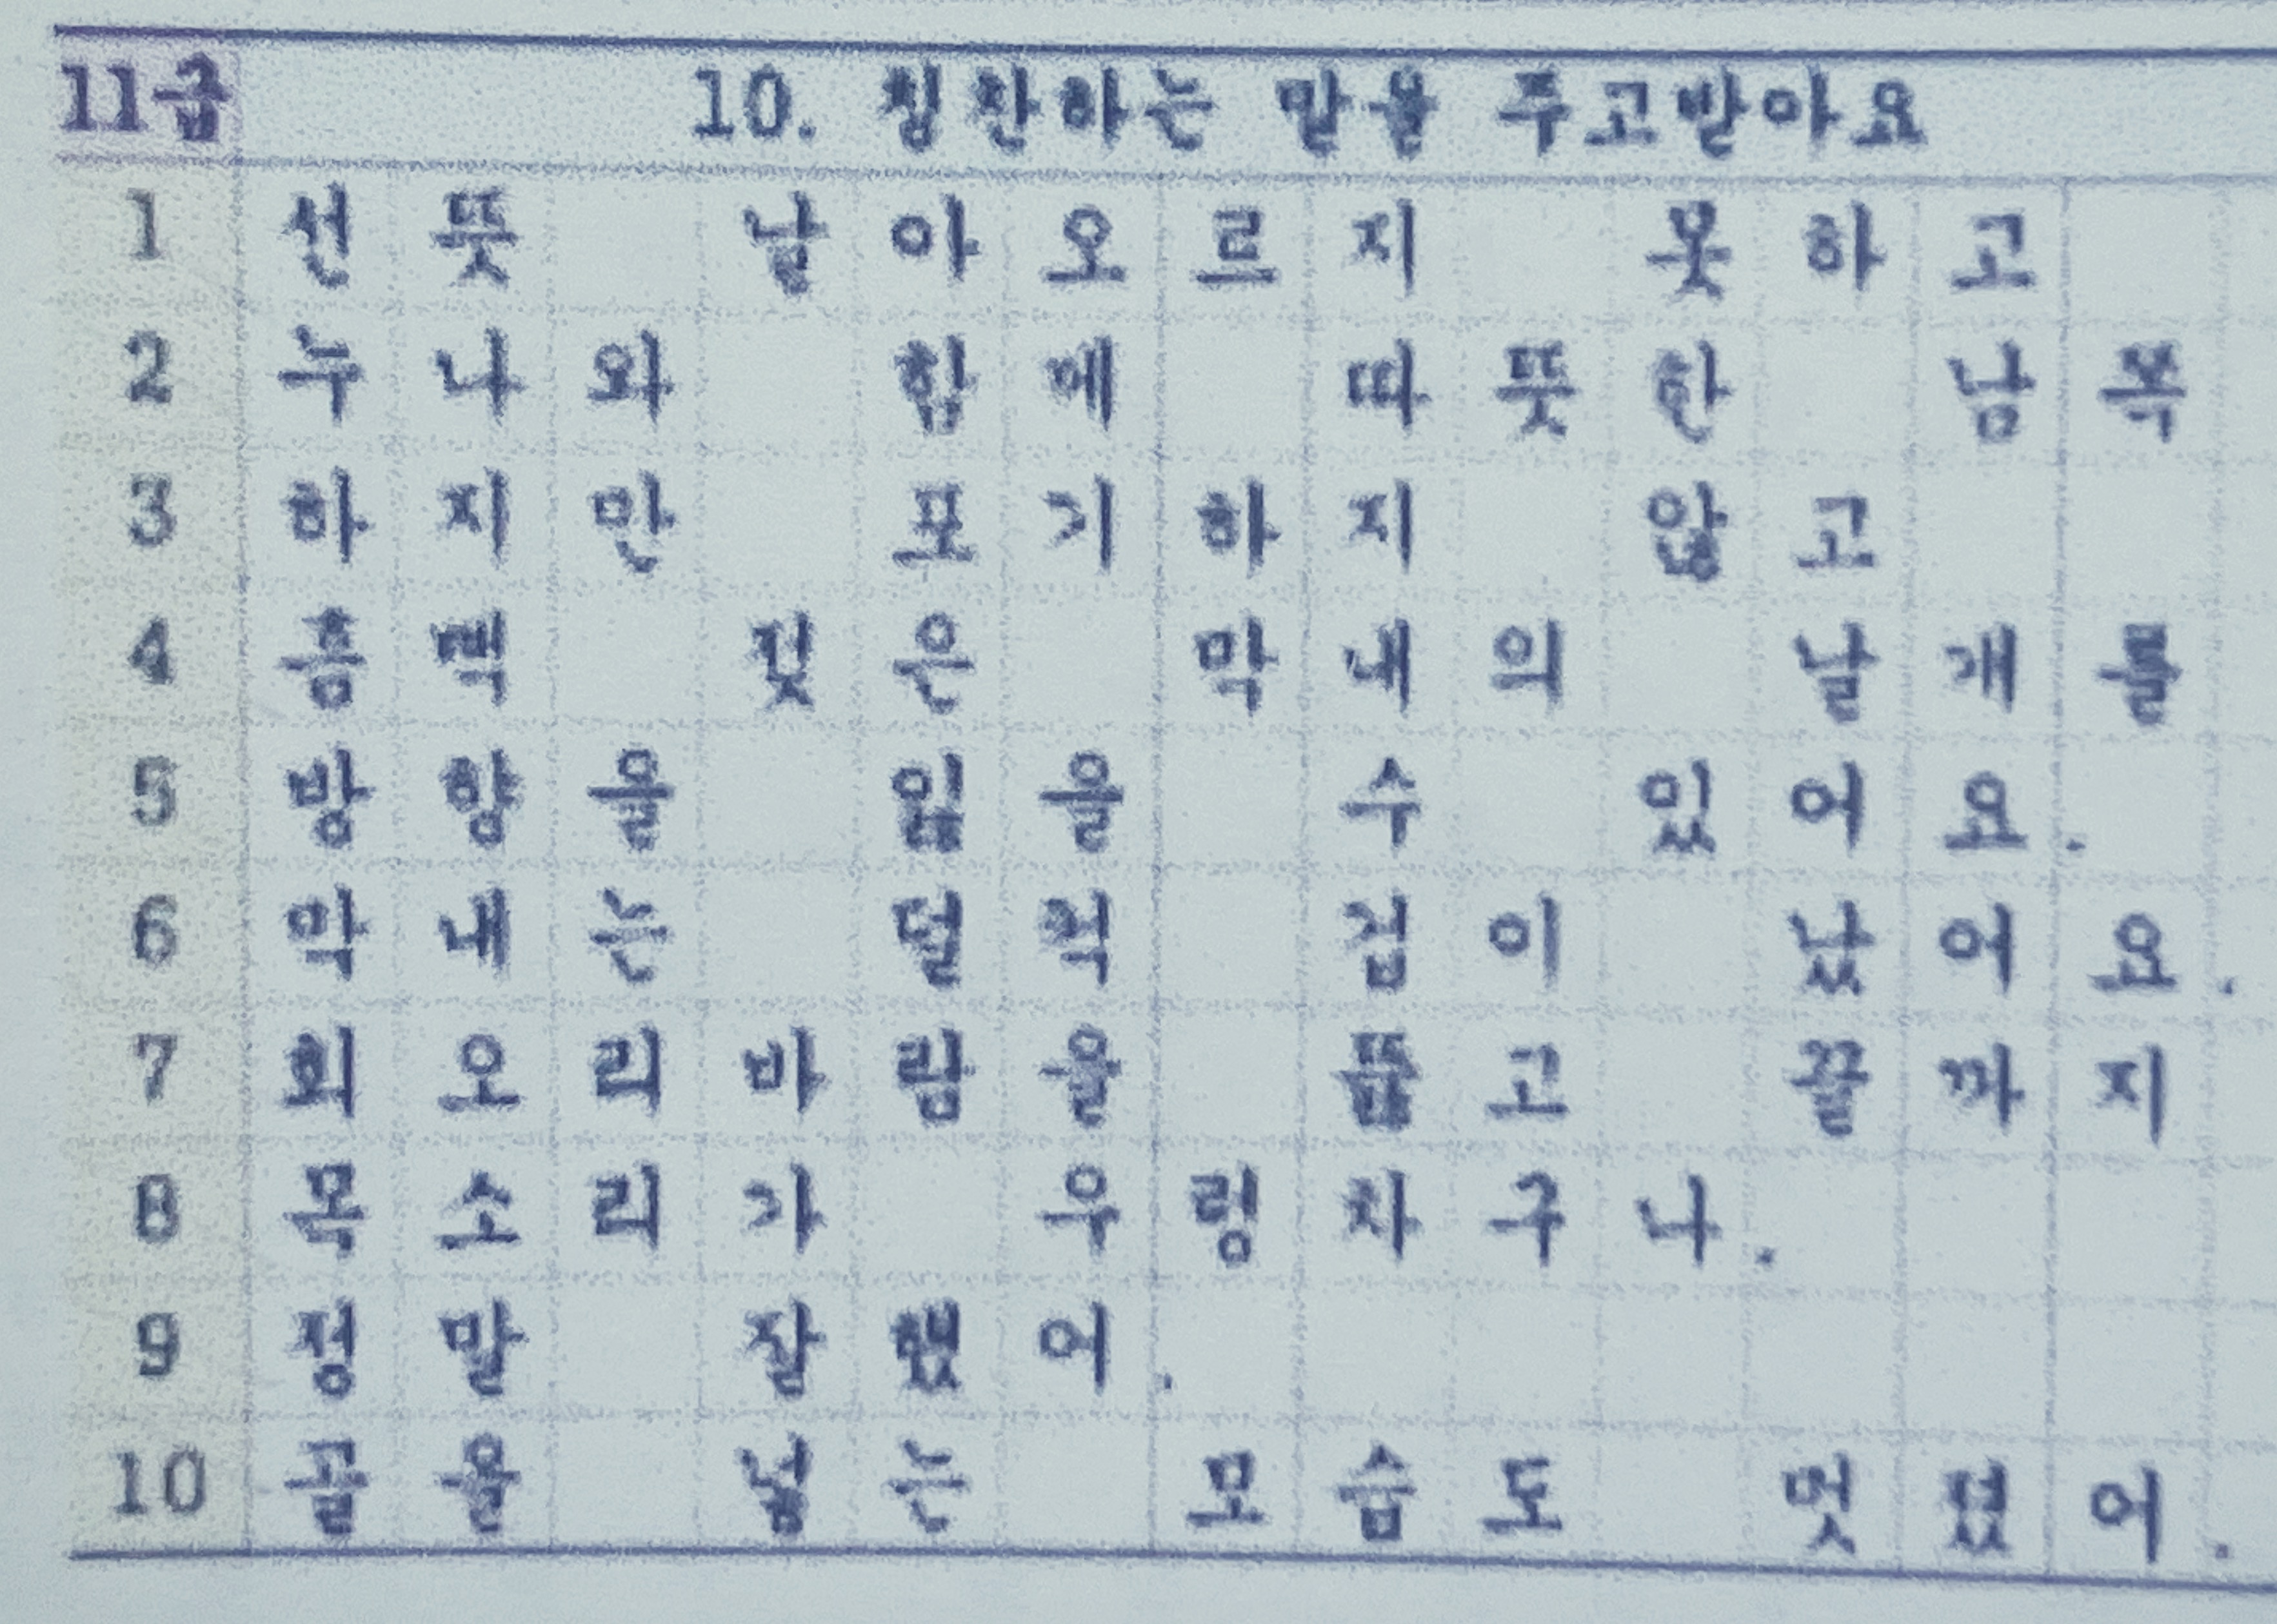 11급 10. 칭찬하는 말을 주고받아요
1 선뜻 날아오르지 못하고
2 누나와 함께 따뜻한 남쪽
3 하지만 포기하지 않고
4 흠뻑 젖은 막내의 날개를
5 방향을 잃을 수 있어요.
6 막내는 덜컥 겁이 났어요.
7 회오리바람을 뚫고 끝까지
8 목소리가 우렁차구나.
9 정말 잘했어.
10 골을 넣는 모습도 멋졌어.